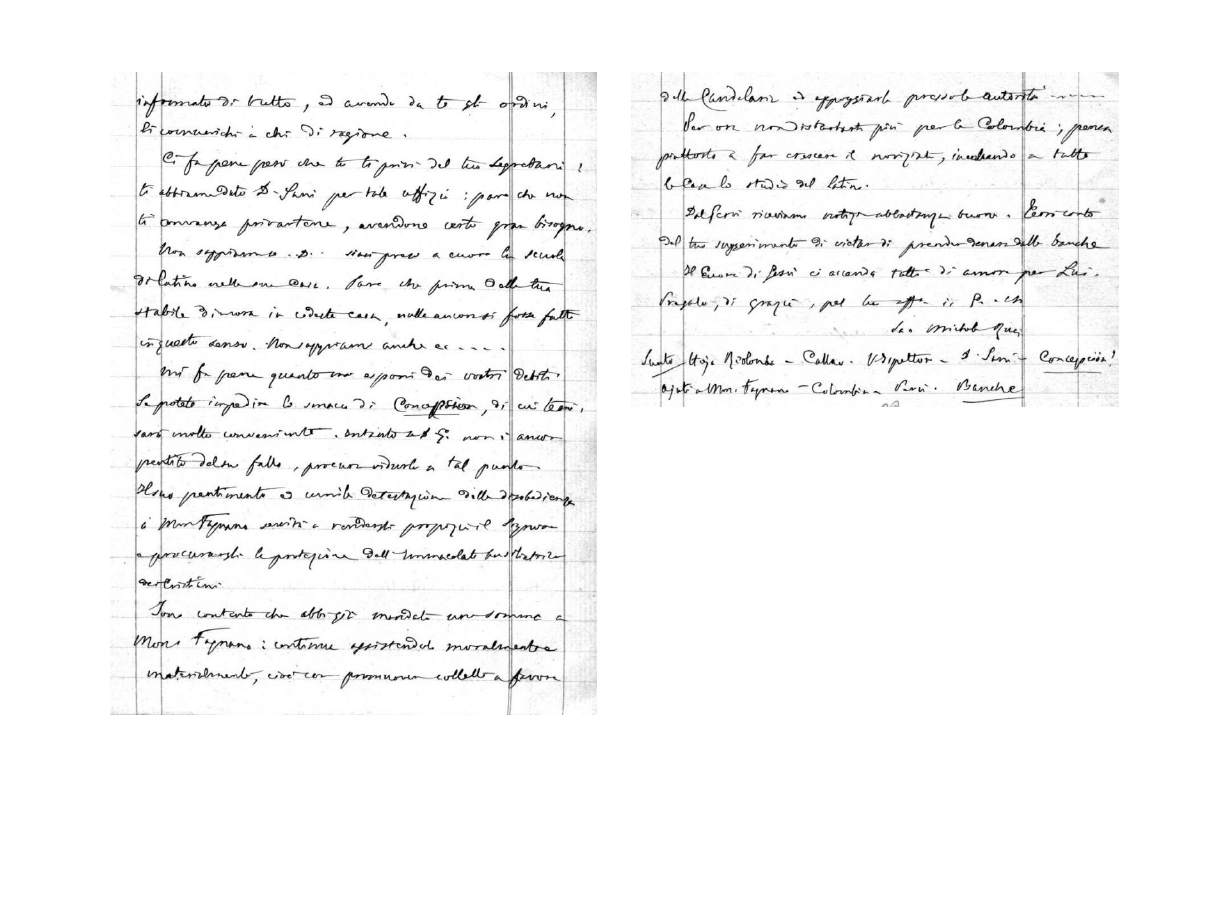 informato di tutto, ed avendo da te gli ordini,
li comunichi a chi di ragione.
Ci fa pena però che tu ti privi del tuo Segretario!
ti abbiam dato D. Sani per tale uffizio: pare che non
ti convenga privartene, avendone certo gran bisogno.
Non sappiamo se D. siasi preso a cuore la scuola
di latino nelle sue Case. Pare che prima della tua
stabile dimora in codesta casa, nulla ancora si fosse fatto
in questo senso. Non sappiam anche se ....
Mi fa pena quanto mi esponi dei vostri debiti.
Se potete impedire lo smacco di Concepcion, di cui temi,
sarà molto conveniente. Intanto se D. G. non è ancor
pentito del suo fallo, procura ridurlo a tal punto.
Il suo pentimento ed umile detestazione della disobbedienza
a Mons. Fagnano servirà a rendergli propizio il Signore
e procurargli la protezione dell'Immacolata Ausiliatrice
dei Cristiani.
Son contento che abbi già mandato una somma a
Mons. Fagnano: continua assistendolo moralmente e
materialmente, cioè con promuover collette a favore
della Candelaria ed appoggiarlo presso le autorità -----
Per ora non disturbarti più per la Colombia; pensa
piuttosto a far crescere il noviziato, inculcando a tutte
le Case lo studio del latino.
Dal Perù riceviamo notizie abbastanza buone. Terrò conto
del tuo suggerimento di vietar di prender denaro dalle banche
Il Cuore di Gesù ci accenda tutti di amore per Lui.
Pregalo, di grazia, pel tuo aff. in G. e M.
Sac. Michele Rua
Sunto Callao - D. Sani - Concepción!
ajuti a Mons. Fagnano - Colombia - Perù. Banche